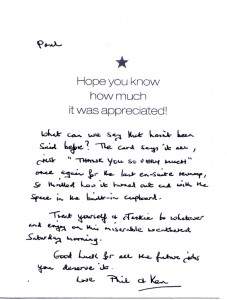 Paul
Hope you know
how much
it was appreciated!
What can we say that hasn't been
said before? The card says it all,
just "THANK YOU SO VERY MUCH"
once again for the last en-suite revamp,
so thrilled how it turned out and with the
space in the built-in cupboard.
Treat yourself & Jackie to whatever
and enjoy on this miserable weathered
Saturday morning.
Good luck for all the future jobs
you deserve it.
Love Phil & Ken